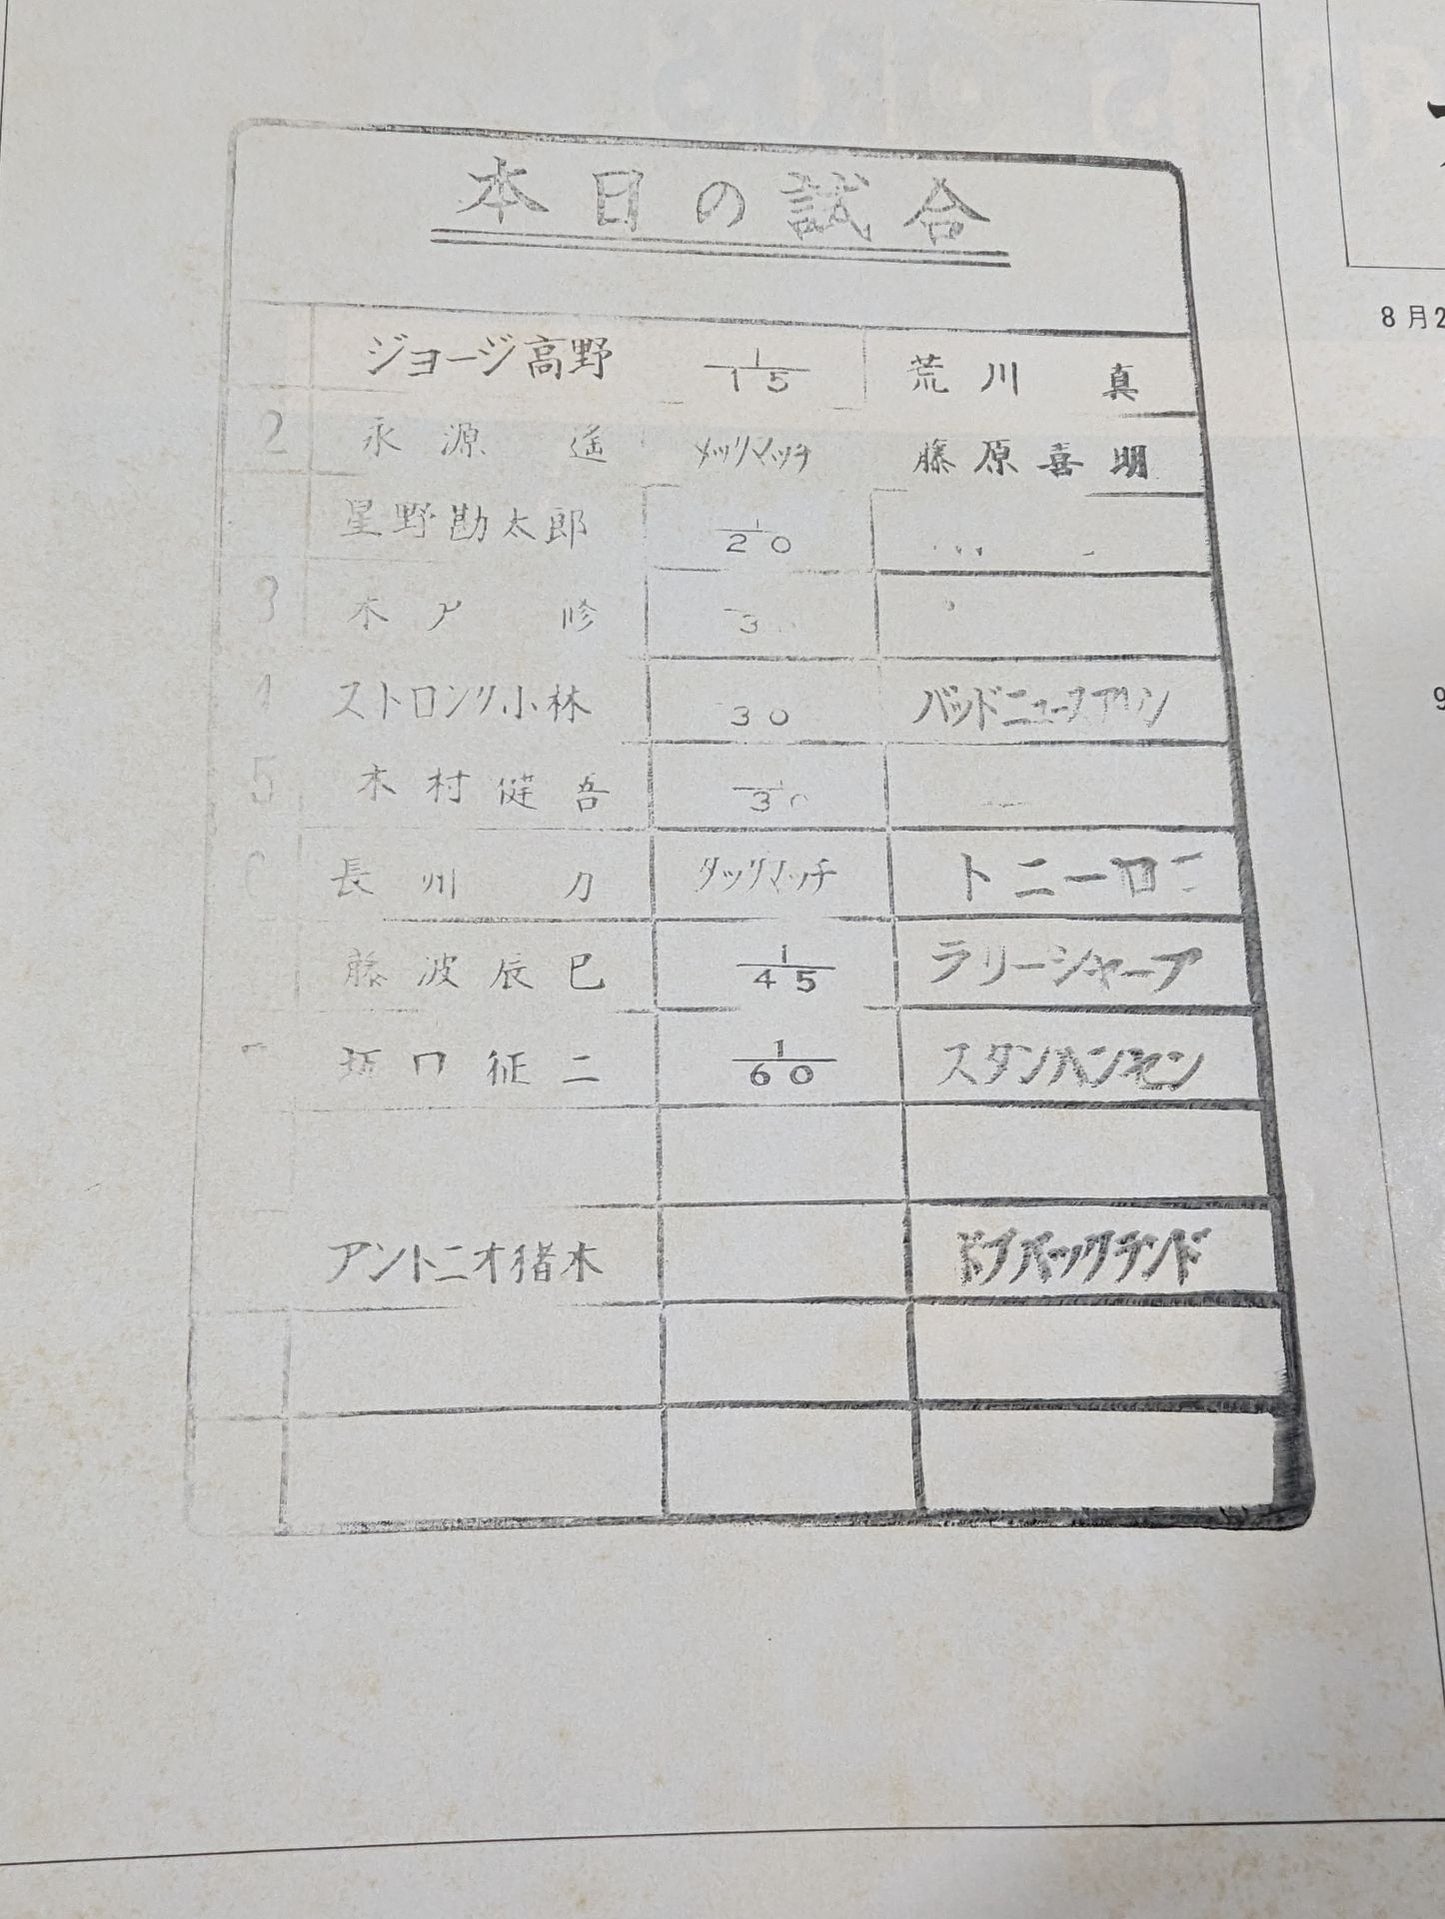 本日の試合
ジョージ高野 1/15 荒川 真
2 永源 遙 タッグマッチ 藤原喜明
星野勘太郎 1/20
3 木戸 修 3
ストロング小林 30 バッドニュースアレン
5 木村健吾 30
長州 力 タッグマッチ トニーロコ
藤波辰巳 1/45 ラリーシャープ
坂口征二 1/60 スタンハンセン
アントニオ猪木 ボブバックランド
8月2
9